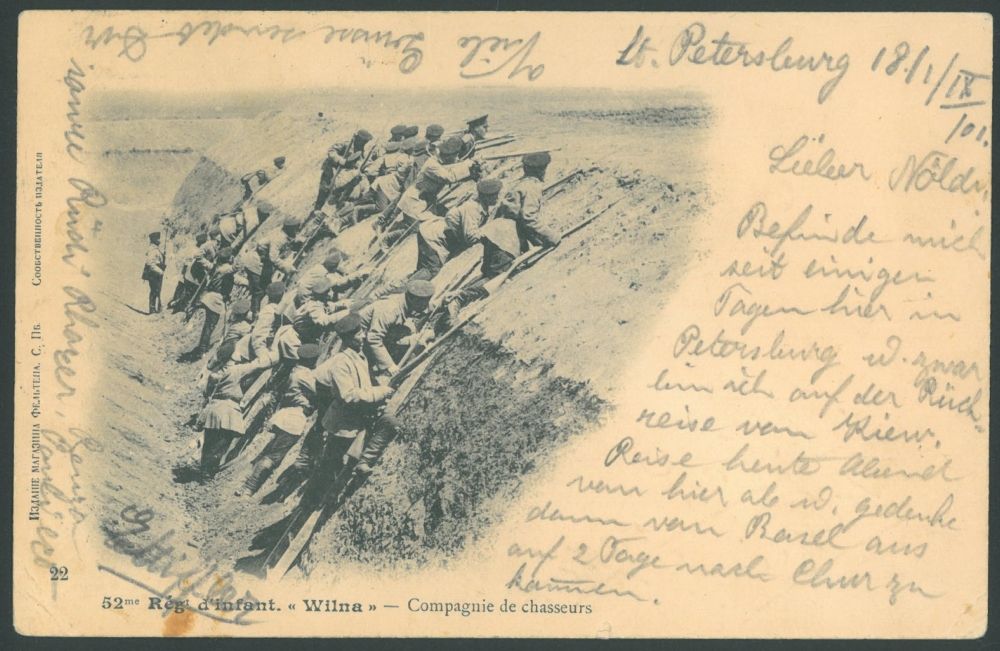 St. Petersburg 18./1/IX
/01.
Lieber Nöldi.
Befinde mich
seit einigen
Tagen hier in
Petersburg u. zwar
bin ich auf der Rück-
reise von Kiew.
Reise heute Abend
von hier ab u. gedenke
dann von Basel aus
auf 2 Tage nach Chur zu
kommen.
Viele Grüsse sendet Dir
СОБСТВЕННОСТЬ ИЗДАТЕЛЯ
ИЗДАНІЕ МАГАЗИНА ФЕЛЬТЕНА. С. ПБ.
22
52me Régt d'infant. « Wilna » — Compagnie de chasseurs